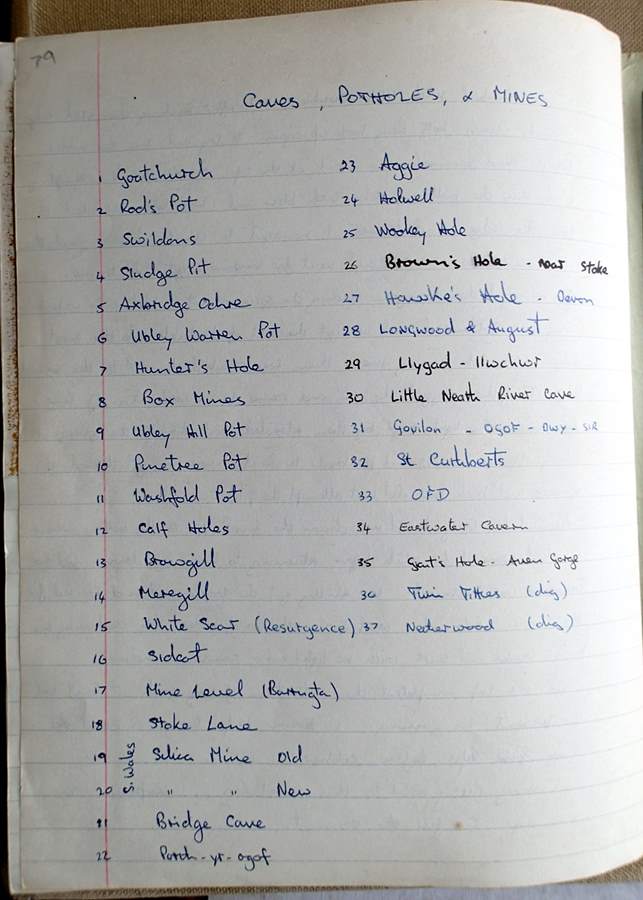 79
Caves, POTHOLES, & MINES
1 Goatchurch
2 Rod's Pot
3 Swildons
4 Sludge Pit
5 Axbridge Ochre
6 Ubley Warren Pot
7 Hunter's Hole
8 Box Mines
9 Ubley Hill Pot
10 Pinetree Pot
11 Washfold Pot
12 Calf Holes
13 Browgill
14 Meregill
15 White Scar (Resurgence)
16 Sidcot
17 Mine Level
18 Stoke Lane
S. Wales
19 Silica Mine Old
20 " " New
21 Bridge Cave
22 Porth-yr-ogof
23 Aggie
24 Holwell
25 Wookey Hole
26 Brown's Hole - near Stoke
27 Hawke's Hole - Devon
28 LONGWOOD & August
29 Llygad - llwchwr
30 Little Neath River Cave
31 Govilon - OGOF - DWY - SIR
32 St Cuthberts
33 OFD
34 Eastwater Cavern
35 Goat's Hole - Avon Gorge
36 Twin Titties (dig)
37 Netherwood (dig)